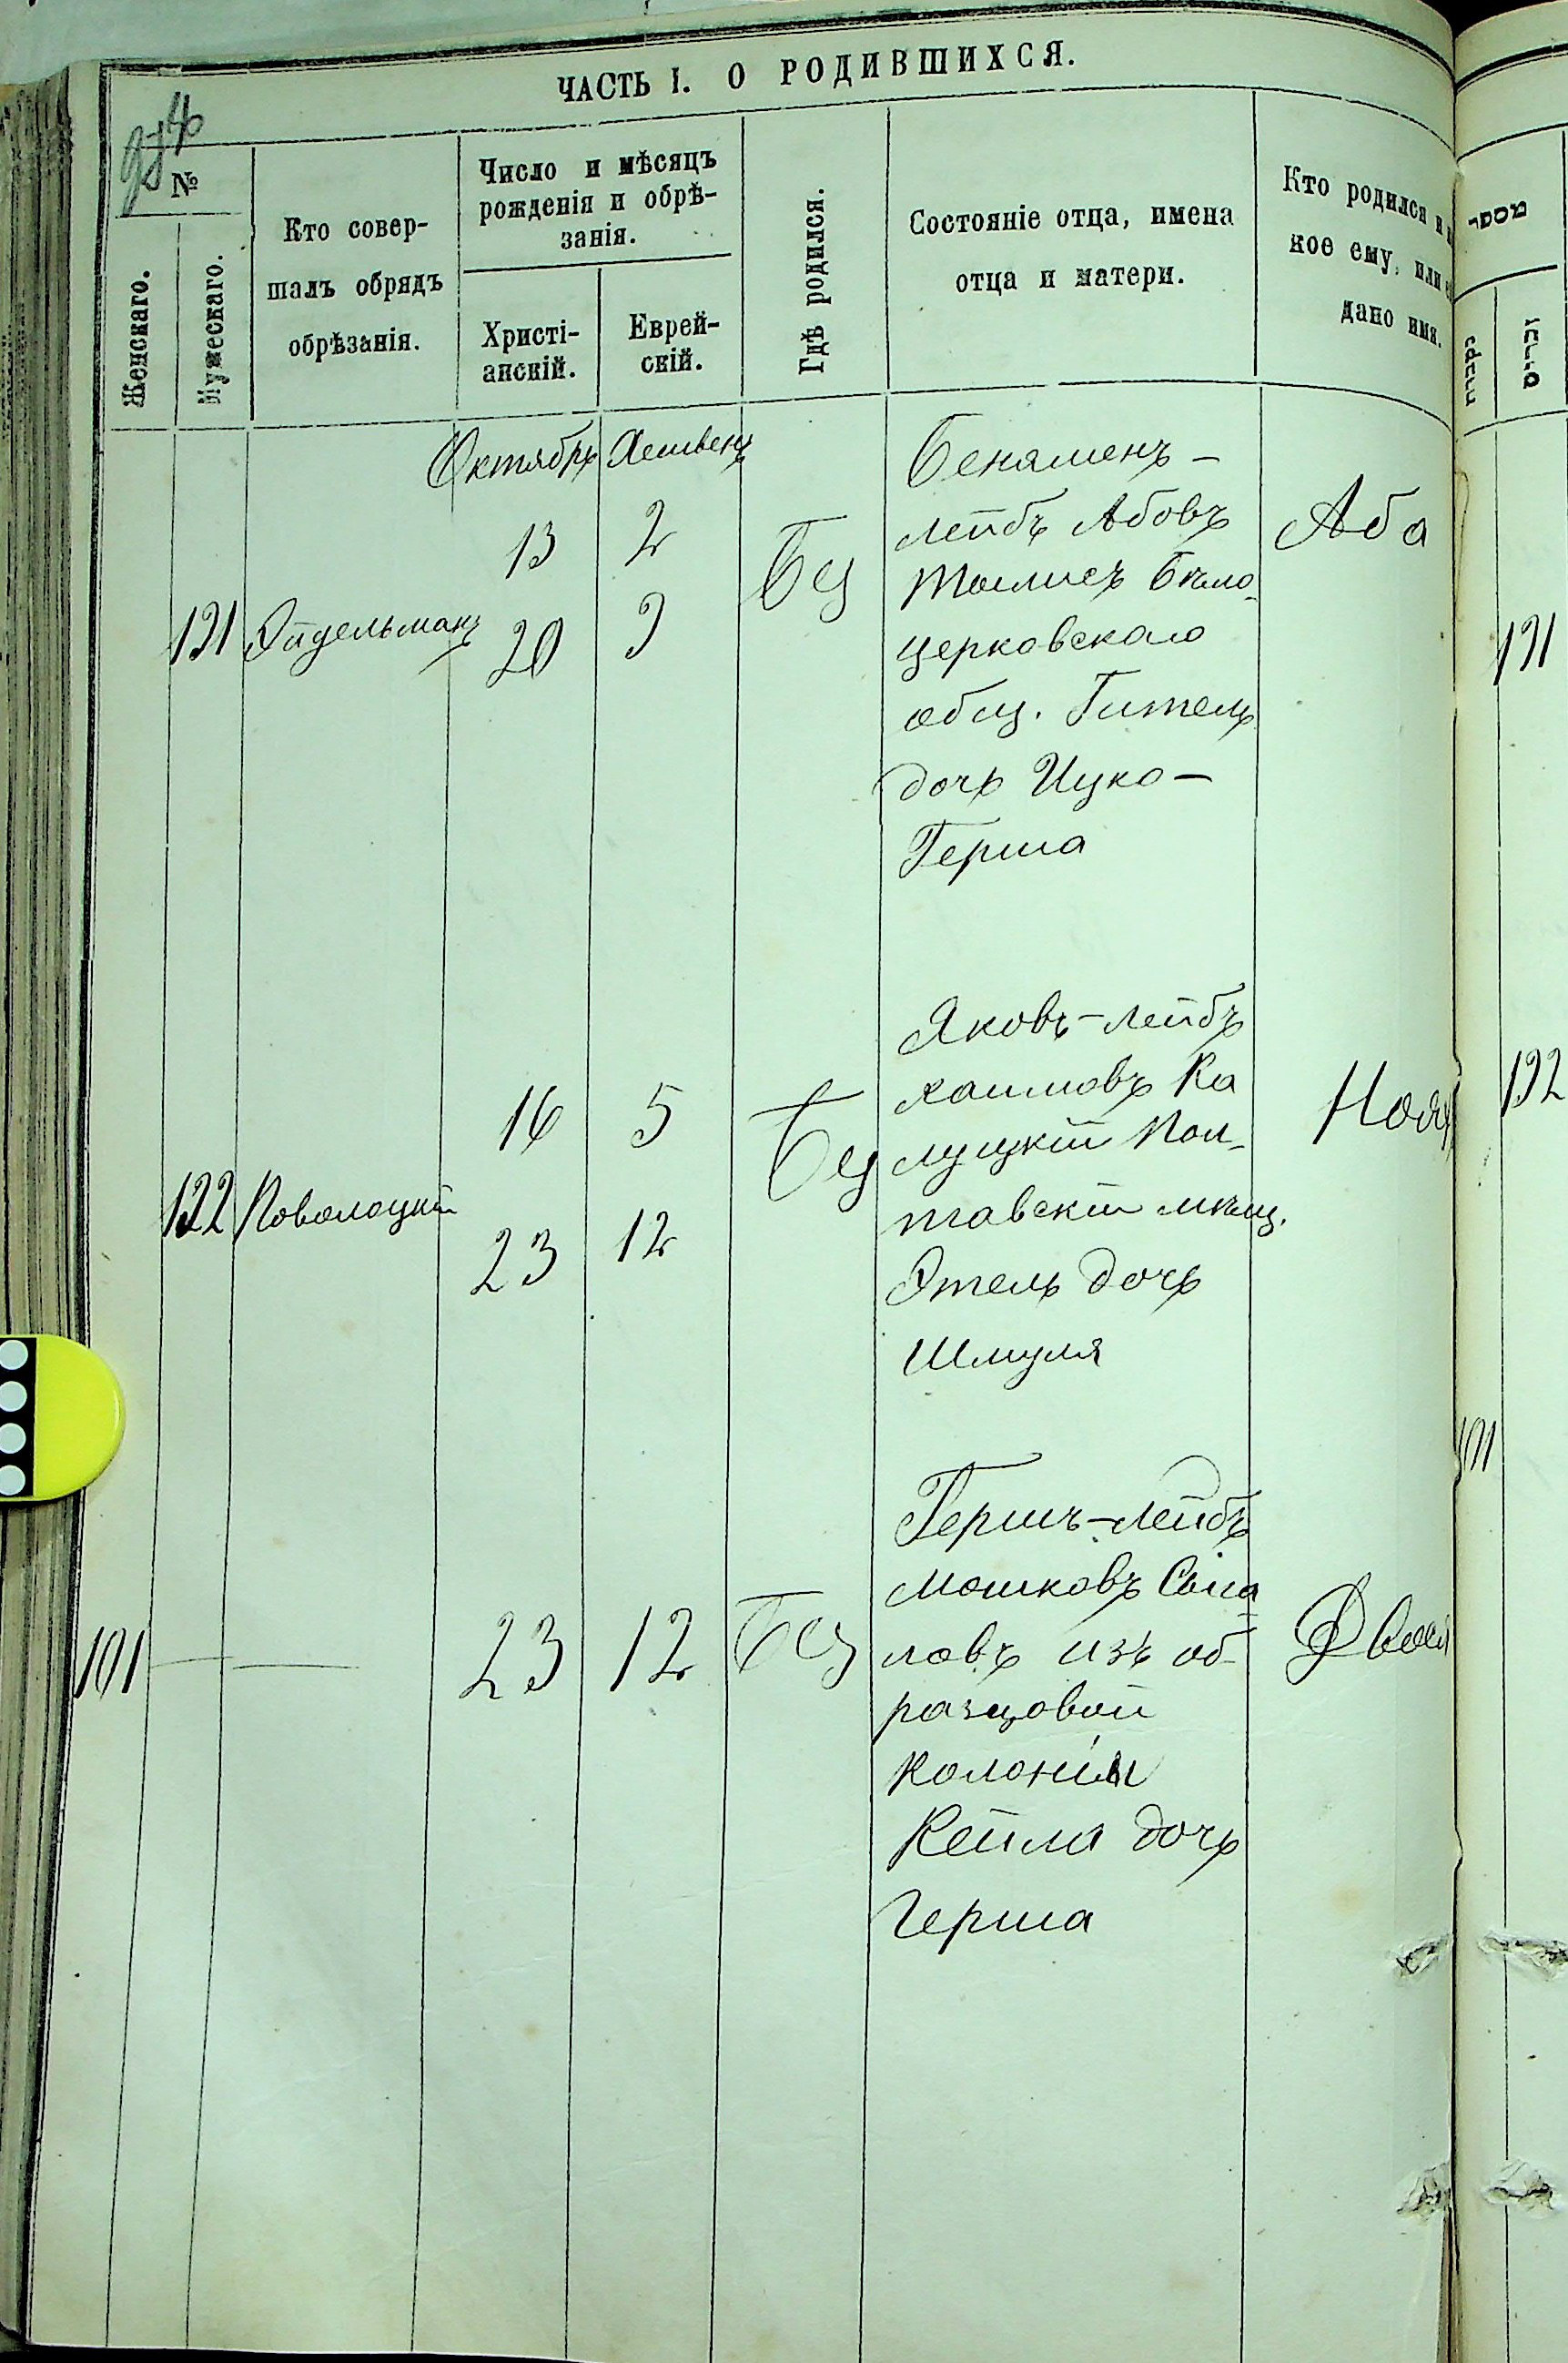 ЧАСТЬ I. О РОДИВШИХСЯ.
№
Женскаго.
Мужескаго.
Кто совер-
шалъ обрядъ
обрѣзанія.
Число и мѣсяцъ
рожденія и обрѣ-
занія.
Христі-
анскій.
Еврей-
скій.
Гдѣ родился.
Состояніе отца, имена
отца и матери.
Кто родился и
кое ему, или
дано имя.
מספר
נקבות
זכרים
Октябрь Хешвенъ
131 Эйдельманъ
13 2
20 9
Бц
Беняменъ-
Лейбъ Абовъ
Бѣло-
церковскаго
общ. Гитель
дочь Ицко-
Герша
Аба
131
132 Поволоцкій
16 5
23 12
Бц
Яковъ-Лейбъ
Хаимовъ Ка
луцкій Пол-
тавскій мѣщ.
Этель дочь
Шмуля
Ноях
132
101 — —
23 12
Бц
Гершъ-Лейбъ
Мошковъ
ловъ изъ об-
разцовой
колоніи
Кейла дочь
Герша
Двося
101